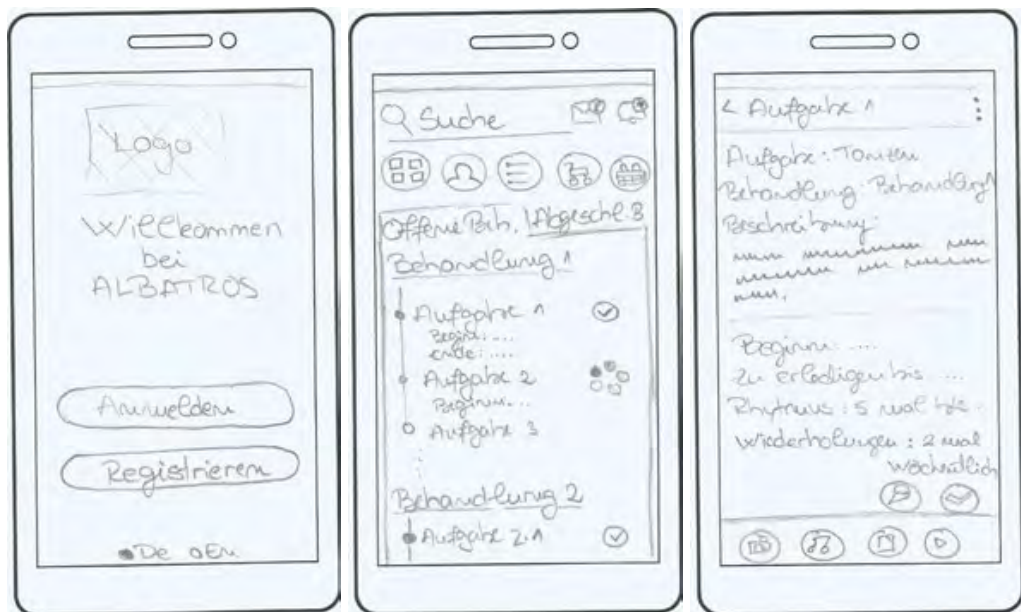 Logo
Willkommen
bei
ALBATROS
Anmelden
Registrieren
De En
Suche
Offene Beh. Abgeschl. B
Behandlung 1
Aufgabe 1
Beginn: ....
Ende: ....
Aufgabe 2
Beginn....
Aufgabe 3
Behandlung 2
Aufgabe 2.1
< Aufgabe 1
Aufgabe: Tanzen
Behandlung: Behandlung 1
Beschreibung:
Beginn: ....
Zu erledigen bis ...
Rhytmus: 5 mal
Wiederholungen: 2 mal
wöchentlich